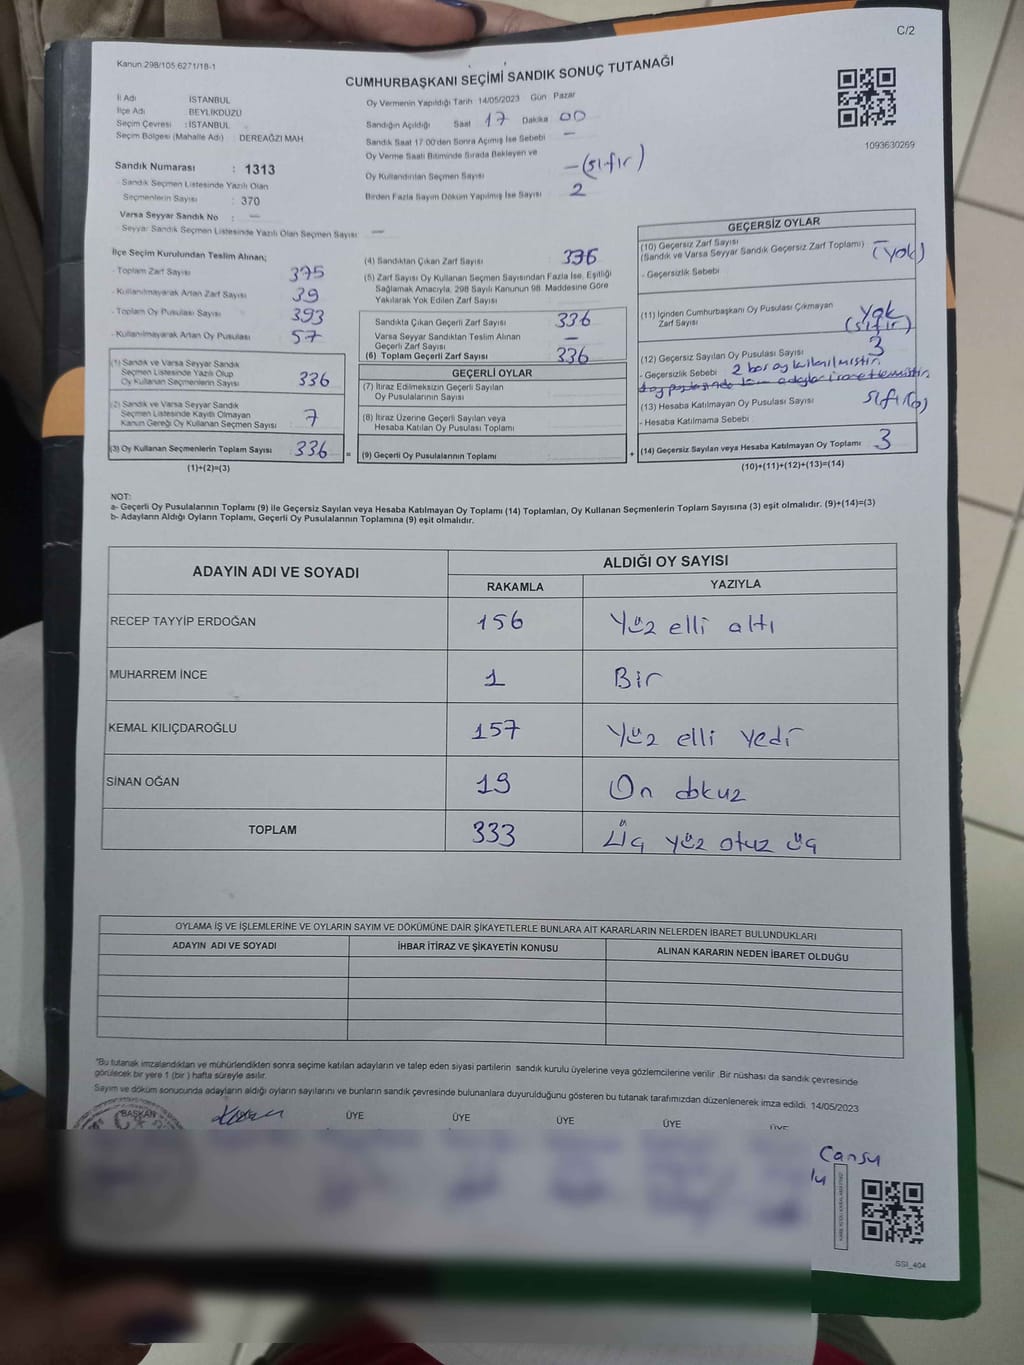 C/2
Kanun:298/105,6271/18-1
CUMHURBAŞKANI SEÇİMİ SANDIK SONUÇ TUTANAĞI
İl Adı : İSTANBUL
İlçe Adı : BEYLİKDÜZÜ
Seçim Çevresi : İSTANBUL
Seçim Bölgesi (Mahalle Adı) : DEREAĞZI MAH
Oy Vermenin Yapıldığı Tarih 14/05/2023 Gün Pazar
Sandığın Açıldığı Saat 17 Dakika 00
Sandık Saat 17:00'den Sonra Açımış İse Sebebi —
Oy Verme Saati Bitiminde Sırada Bekleyen ve
Oy Kullandırılan Seçmen Sayısı — (sıfır)
Birden Fazla Sayım Döküm Yapılmış İse Sayısı 2
1093630269
Sandık Numarası : 1313
- Sandık Seçmen Listesinde Yazılı Olan
Seçmenlerin Sayısı : 370
Varsa Seyyar Sandık No : —
- Seyyar Sandık Seçmen Listesinde Yazılı Olan Seçmen Sayısı : —
İlçe Seçim Kurulundan Teslim Alınan;
- Toplam Zarf Sayısı 375
- Kullanılmayarak Artan Zarf Sayısı 39
- Toplam Oy Pusulası Sayısı 393
- Kullanılmayarak Artan Oy Pusulası 57
(1) Sandık ve Varsa Seyyar Sandık
Seçmen Listesinde Yazılı Olup
Oy Kullanan Seçmenlerin Sayısı 336
(2) Sandık ve Varsa Seyyar Sandık
Seçmen Listesinde Kayıtlı Olmayan
Kanun Gereği Oy Kullanan Seçmen Sayısı 7
(3) Oy Kullanan Seçmenlerin Toplam Sayısı 336 =
(1)+(2)=(3)
(4) Sandıktan Çıkan Zarf Sayısı 336
(5) Zarf Sayısı Oy Kullanan Seçmen Sayısından Fazla İse, Eşitliği
Sağlamak Amacıyla, 298 Sayılı Kanunun 98. Maddesine Göre
Yakılarak Yok Edilen Zarf Sayısı
Sandıkta Çıkan Geçerli Zarf Sayısı 336
Varsa Seyyar Sandıktan Teslim Alınan
Geçerli Zarf Sayısı —
(6) Toplam Geçerli Zarf Sayısı 336
GEÇERLİ OYLAR
(7) İtiraz Edilmeksizin Geçerli Sayılan
Oy Pusulalarının Sayısı
(8) İtiraz Üzerine Geçerli Sayılan veya
Hesaba Katılan Oy Pusulası Toplamı
(9) Geçerli Oy Pusulalarının Toplamı +
GEÇERSİZ OYLAR
(10) Geçersiz Zarf Sayısı
(Sandık ve Varsa Seyyar Sandık Geçersiz Zarf Toplamı) (yok)
- Geçersizlik Sebebi
(11) İçinden Cumhurbaşkanı Oy Pusulası Çıkmayan
Zarf Sayısı yok (sıfır)
(12) Geçersiz Sayılan Oy Pusulası Sayısı 3
- Geçersizlik Sebebi 2 boş oy kullanılmıştır.
(13) Hesaba Katılmayan Oy Pusulası Sayısı sıfır(0)
- Hesaba Katılmama Sebebi
(14) Geçersiz Sayılan veya Hesaba Katılmayan Oy Toplamı 3
(10)+(11)+(12)+(13)=(14)
NOT:
a- Geçerli Oy Pusulalarının Toplamı (9) ile Geçersiz Sayılan veya Hesaba Katılmayan Oy Toplamı (14) Toplamları, Oy Kullanan Seçmenlerin Toplam Sayısına (3) eşit olmalıdır. (9)+(14)=(3)
b- Adayların Aldığı Oyların Toplamı, Geçerli Oy Pusulalarının Toplamına (9) eşit olmalıdır.
ADAYIN ADI VE SOYADI
ALDIĞI OY SAYISI
RAKAMLA YAZIYLA
RECEP TAYYİP ERDOĞAN 156 Yüz elli altı
MUHARREM İNCE 1 Bir
KEMAL KILIÇDAROĞLU 157 Yüz elli yedi
SİNAN OĞAN 19 On dokuz
TOPLAM 333 Üç yüz otuz üç
OYLAMA İŞ VE İŞLEMLERİNE VE OYLARIN SAYIM VE DÖKÜMÜNE DAİR ŞİKAYETLERLE BUNLARA AİT KARARLARIN NELERDEN İBARET BULUNDUKLARI
ADAYIN ADI VE SOYADI İHBAR İTİRAZ VE ŞİKAYETİN KONUSU ALINAN KARARIN NEDEN İBARET OLDUĞU
"Bu tutanak imzalandıktan ve mühürlendikten sonra seçime katılan adayların ve talep eden siyasi partilerin sandık kurulu üyelerine veya gözlemcilerine verilir. Bir nüshası da sandık çevresinde
görülecek bir yere 1 (bir ) hafta süreyle asılır.
Sayım ve döküm sonucunda adayların aldığı oyların sayılarını ve bunların sandık çevresinde bulunanlara duyurulduğunu gösteren bu tutanak tarafımızdan düzenlenerek imza edildi. 14/05/2023
BAŞKAN ÜYE ÜYE ÜYE ÜYE ÜYE
Cansu
SSI_404